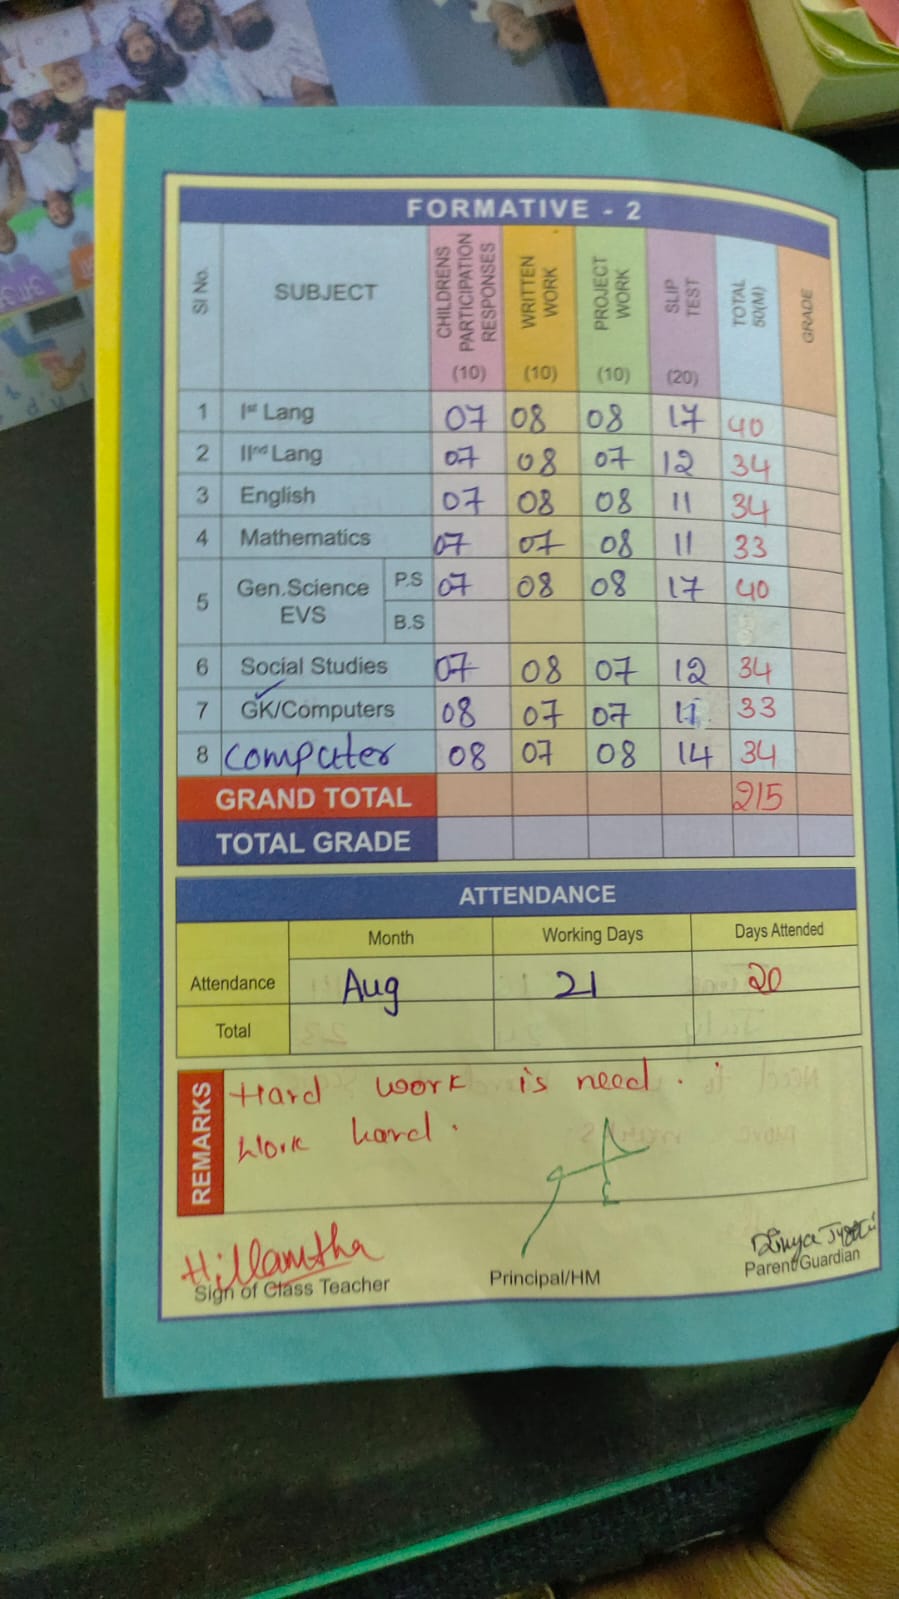 FORMATIVE - 2
SI No. SUBJECT CHILDRENS PARTICIPATION RESPONSES (10) WRITTEN WORK (10) PROJECT WORK (10) SLIP TEST (20) TOTAL 50(M) GRADE
1 Ist Lang 07 08 08 17 40
2 IInd Lang 07 08 07 12 34
3 English 07 08 08 11 34
4 Mathematics 07 07 08 11 33
5 Gen.Science EVS P.S 07 08 08 17 40
B.S
6 Social Studies 07 08 07 12 34
7 GK/Computers 08 07 07 11 33
8 Computer 08 07 08 14 34
GRAND TOTAL 215
TOTAL GRADE
ATTENDANCE
Month Working Days Days Attended
Attendance Aug 21 20
Total
REMARKS
Hard work is need.
Work hard.
Sign of Class Teacher
Principal/HM
Parent/Guardian